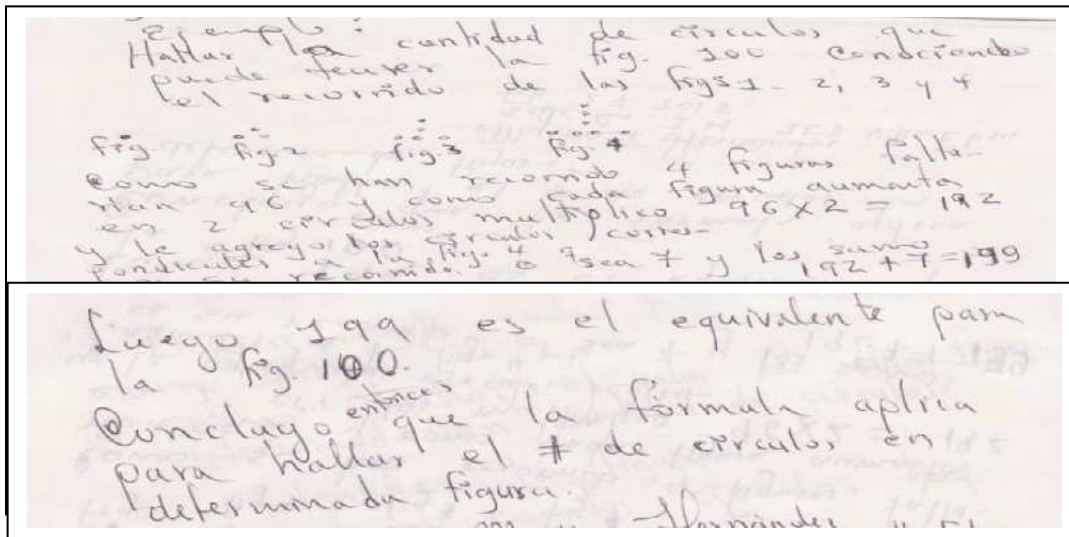 Ejemplo:
Hallar la cantidad de círculos que
puede tener la fig. 100 conociendo
el recorrido de las figs 1-2, 3 y 4
fig fig 2 fig 3 fig. 4
como se han recorrido 4 figuras falta-
rían 96 y como cada figura aumenta
en 2 círculos multiplico 96 x 2 = 192
y le agrego los círculos corres-
pondientes a la fig. 4 o sea 7 y los sumo
recorrido. 192 + 7 = 199
Luego 199 es el equivalente para
la fig. 100.
Concluyo entonces que la fórmula aplica
para hallar el # de círculos en
determinada figura.
Hernández